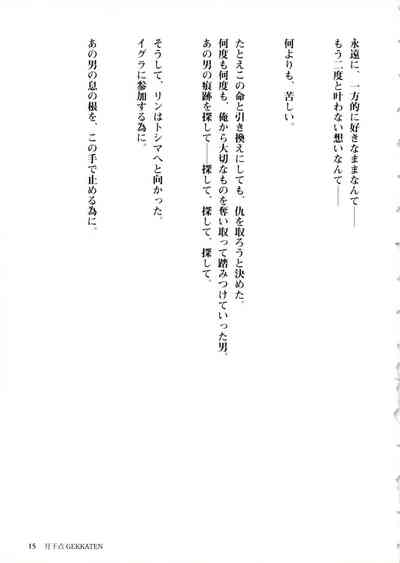 永遠に、一方的に好きなままなんて――
もう二度と叶わない想いなんて――
何よりも、苦しい。
たとえこの命と引き換えにしても、仇を取ろうと決めた。
何度も何度も、俺から大切なものを奪い取って踏みつけていった男。
あの男の痕跡を探して――探して、探して、探して。
そうして、リンはトシマへと向かった。
イグラに参加する為に。
あの男の息の根を、この手で止める為に。
15 月下点 GEKKATEN